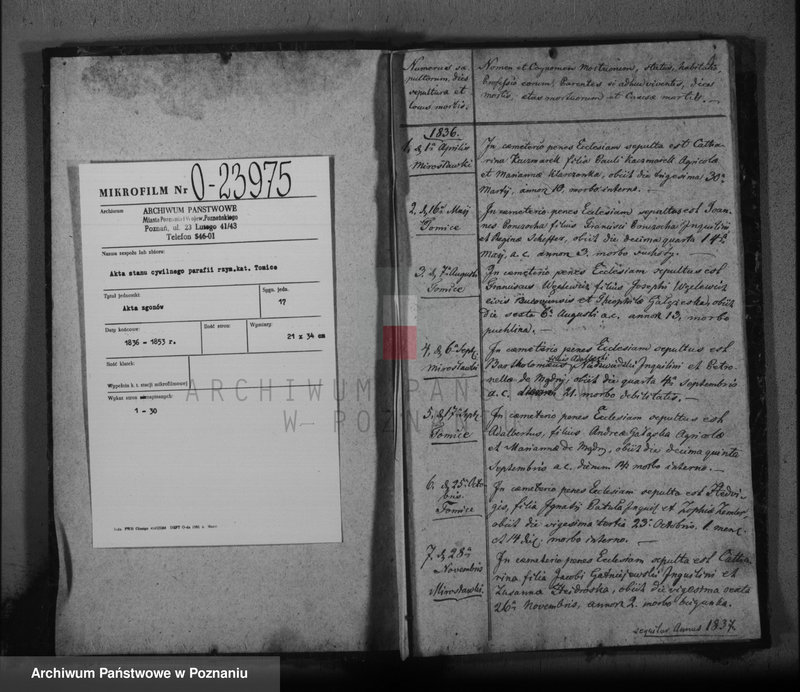 MIKROFILM Nr O-23975
Archiwum ARCHIWUM PAŃSTWOWE
Miasta Poznania i Wojew. Poznańskiego
Poznań, ul. 23 Lutego 41/43
Telefon 546-01
Nazwa zespołu lub zbioru:
Akta stanu cywilnego parafii rzym.kat. Tomice
Tytuł jednostki:
Akta zgonów
Sygn. jedn.
17
Daty końcowe:
1836 - 1853 r.
Ilość stron:
Wymiary:
21 x 34 cm
Ilość klatek:
Wypełnia k. t. stacji mikrofilmowej
Wykaz stron niezapisanych:
1 - 30
Numerus se
pultorum, dies
sepulturae et
locus mortis.
Nomen et Cognomen Mortuorum, status, habitatio
Professio eorum, Parentes si adhuc viventes, dies
mortis, etas mortuorum et Causa mortis.
1836.
1. d. 1a Aprilis
Mirosławki
In cameterio penes Ecclesiam sepulta est Catha
rina Kaczmarek filia Pauli Kaczmarek Agricola
et Marianna, obiit die trigesima 30a
Martij, annor 10. morbo interno.
2. d. 16a Maij
Tomice
In cameterio penes Ecclesiam sepultus est Joan
nes filius Francisci Inquilini
et Regina Scheffer, obiit die decima quarta 14a
Maij, a.c. annor 3. morbo suchoty.
3. d. 7a Augusti
Tomice
In cameterio penes Ecclesiam sepultus est
Franciscus Wyzlewicz filius Josephi Wyzlewicz
civis Bucoviensis et Theophila obiit
die sexta 6a Augusti a.c. annor 13. morbo
puchlina.
4. d. 6a Septb
Mirosławki
In cameterio penes Ecclesiam sepultus est
filius Adalberti
Bartholomaeus Inquilini et Petro
nella de Mądry, obiit die quarta 4a Septembris
a.c. 21. morbo debilitatis.
5. d. 17a Septb
Tomice
In cameterio penes Ecclesiam sepultus est
Adalbertus, filius Andrea Gałąska Agricola
et Marianna de Mądry, obiit die decima quinta
Septembris a.c. dierum 14 morbo interno.
6. d. 25a Octo
bris
Tomice
In cameterio penes Ecclesiam sepulta est Hedvi
gis, filia Ignatij Patula Inquil et Sophia Zemler
obiit die vigesima tertia 23a Octobris, 1 mens.
et 14 die. morbo interno.
7. d. 28a
Novembris
Mirosławki.
In cameterio penes Ecclesiam sepulta est Catha
rina filia Jacobi Inquilini et
Zusanna obiit die vigesima sexta
26a Novembris, annor 2. morbo biegunka.
sequitur Annus 1837.
ARCHIWUM PAŃ
W POZNAN
Archiwum Państwowe w Poznaniu